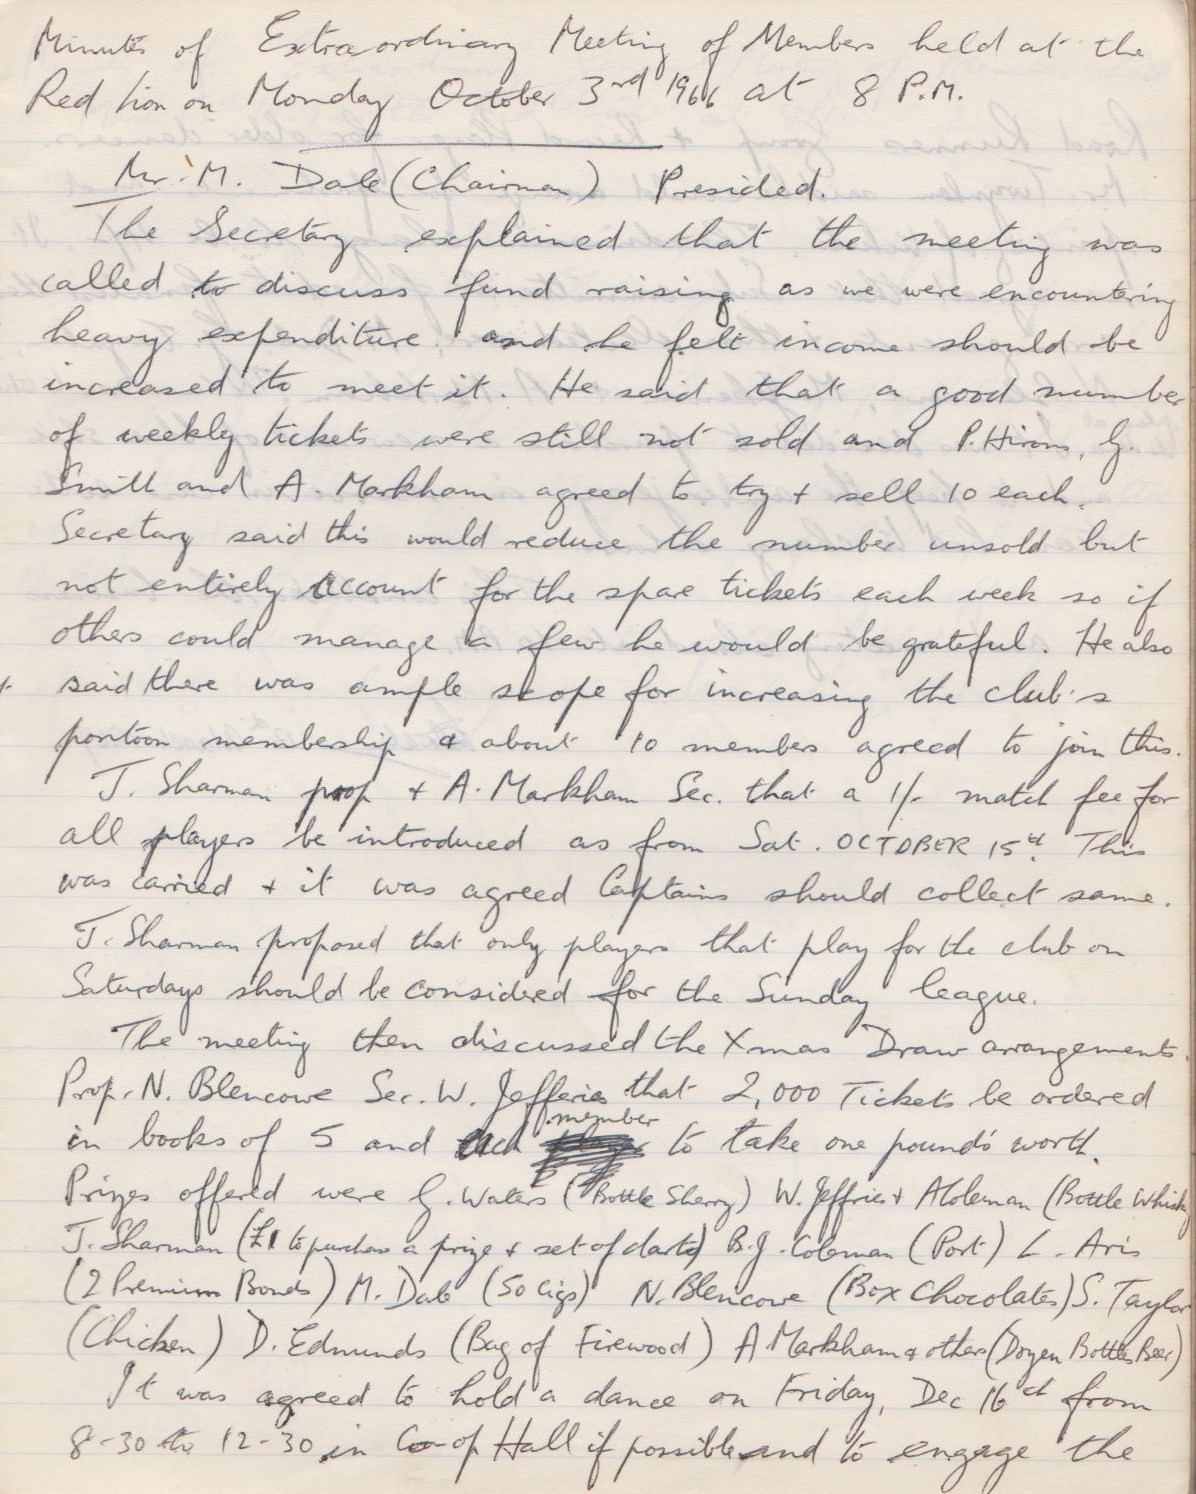 Minutes of Extraordinary Meeting of Members held at the
Red Lion on Monday October 3rd 1966 at 8 P.M.
Mr. M. Dale (Chairman) Presided.
The Secretary explained that the meeting was
called to discuss fund raising as we were encountering
heavy expenditure and he felt income should be
increased to meet it. He said that a good number
of weekly tickets were still not sold and P. Hirons, G.
Smith and A. Markham agreed to try + sell 10 each.
Secretary said this would reduce the number unsold but
not entirely account for the spare tickets each week so if
others could manage a few he would be grateful. He also
said there was ample scope for increasing the club's
pontoon membership & about 10 members agreed to join this.
J. Sharman prop + A. Markham Sec. that a 1/- match fee for
all players be introduced as from Sat. OCTOBER 15th. This
was carried + it was agreed Captains should collect same.
J. Sharman proposed that only players that play for the club on
Saturdays should be considered for the Sunday league.
The meeting then discussed the Xmas Draw arrangements.
Prop. N. Blencowe Sec. W. Jefferies that 2,000 Tickets be ordered
member
in books of 5 and each to take one pound's worth.
Prizes offered were G. Waters (Bottle Sherry) W. Jeffries + A Coleman (Bottle Whisky
J. Sharman (£1 to purchase a prize + set of darts) B.J. Coleman (Port) L. Aris
(2 Premium Bonds) M. Dale (50 Cigs) N. Blencowe (Box Chocolates) S. Taylor
(Chicken) D. Edmunds (Bag of Firewood) A Markham & others (Dozen Bottles Beer)
It was agreed to hold a dance on Friday, Dec 16th from
8-30 to 12-30 in Co-op Hall if possible and to engage the